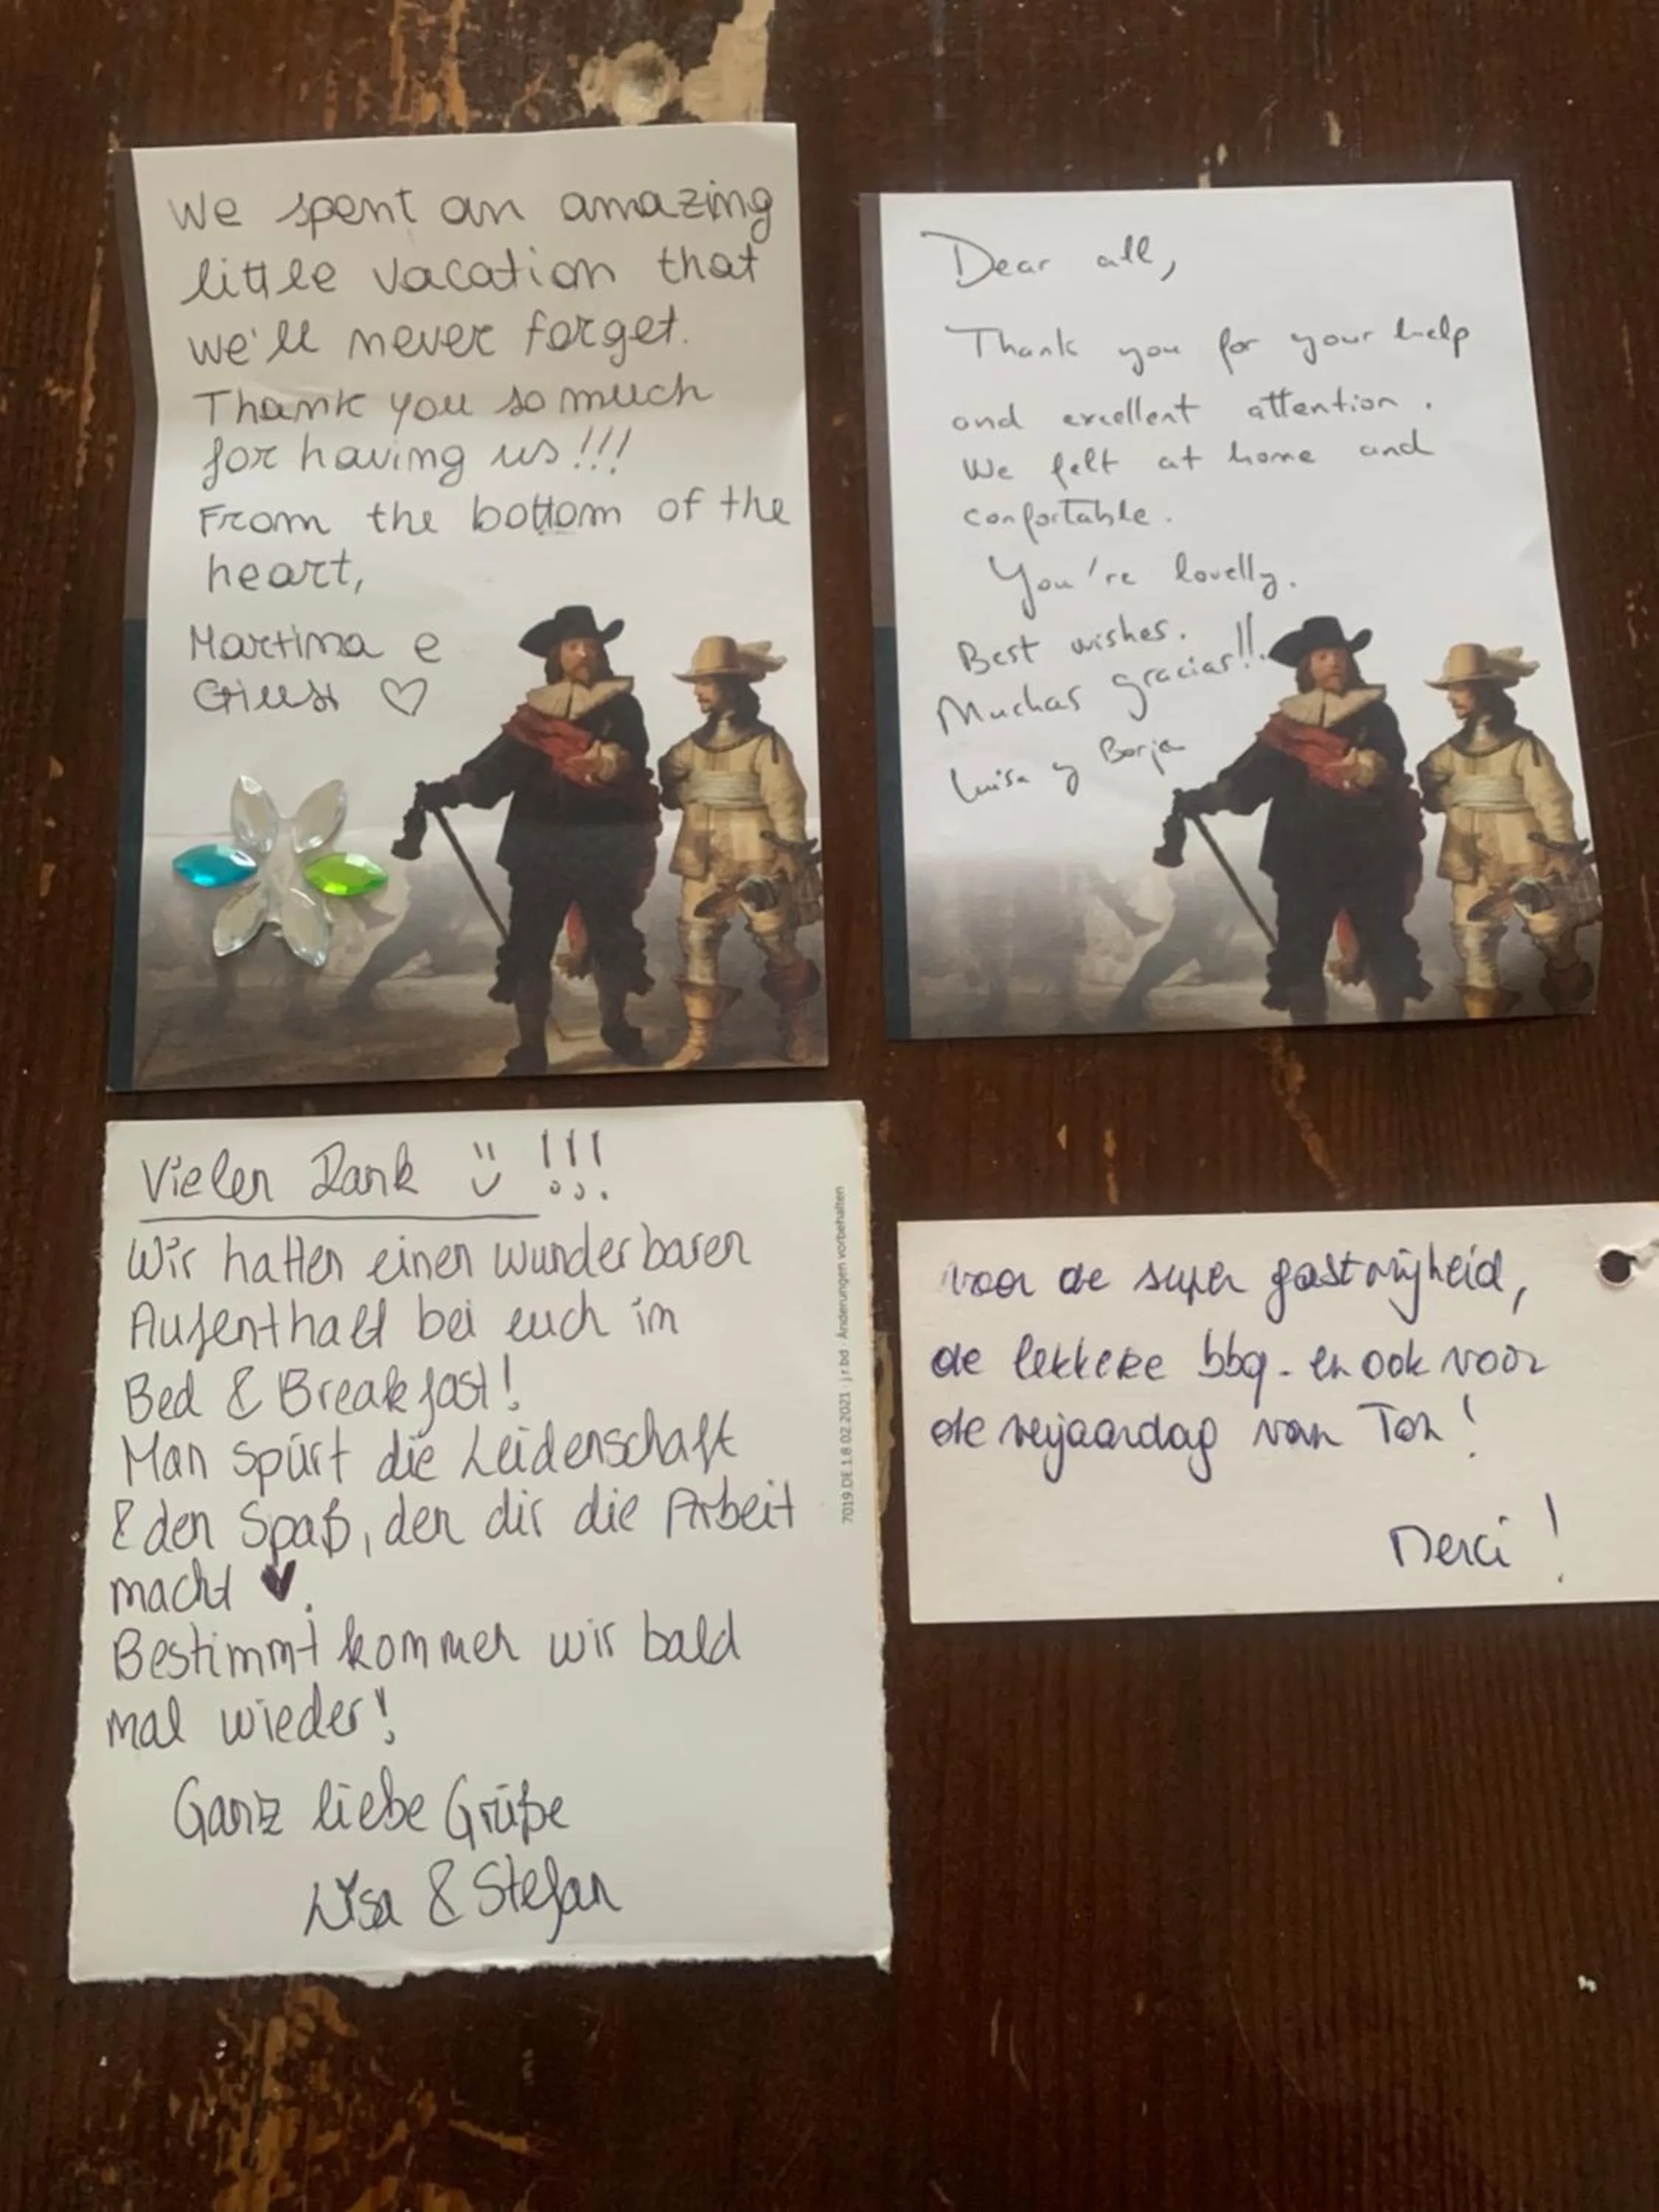 We spent an amazing
little vacation that
we'll never forget.
Thank you so much
for having us!!!
From the bottom of the
heart,
Martina e
Giusi ♡
Dear all,
Thank you for your help
and excellent attention.
We felt at home and
confortable.
You're lovelly.
Best wishes.
Muchas gracias!!
Luisa y Borja
Vielen Dank !!!
Wir hatten einen wunderbaren
Aufenthalt bei euch im
Bed & Breakfast!
Man spürt die Leidenschaft
& den Spaß, den dir die Arbeit
macht ♥.
Bestimmt kommen wir bald
mal wieder!
Ganz liebe Grüße
Lisa & Stefan
7019.DE.1.8.02.2021 · j.r.bd · Änderungen vorbehalten
voor de super gastvrijheid,
de lekkere bbq - en ook voor
de verjaardag van Ton!
Merci!